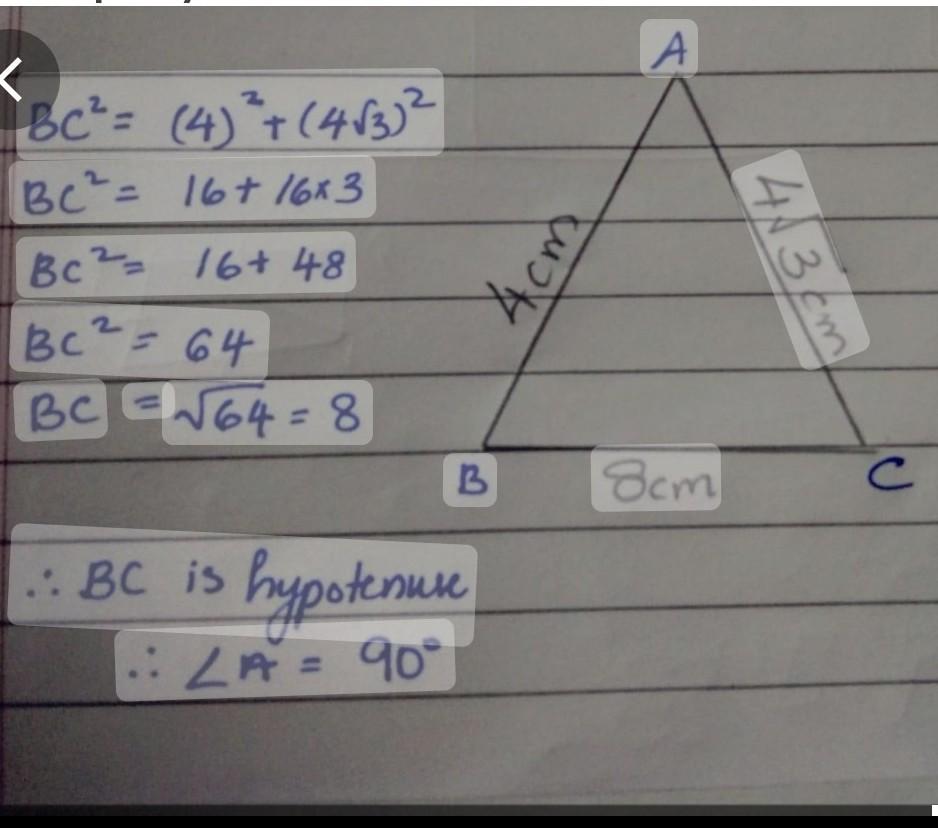 A
BC² = (4)² + (4√3)²
BC² = 16 + 16×3
BC² = 16 + 48
BC² = 64
BC = √64 = 8
4cm
4√3cm
B
8cm
C
∴ BC is hypotenuse
∴ ∠A = 90°